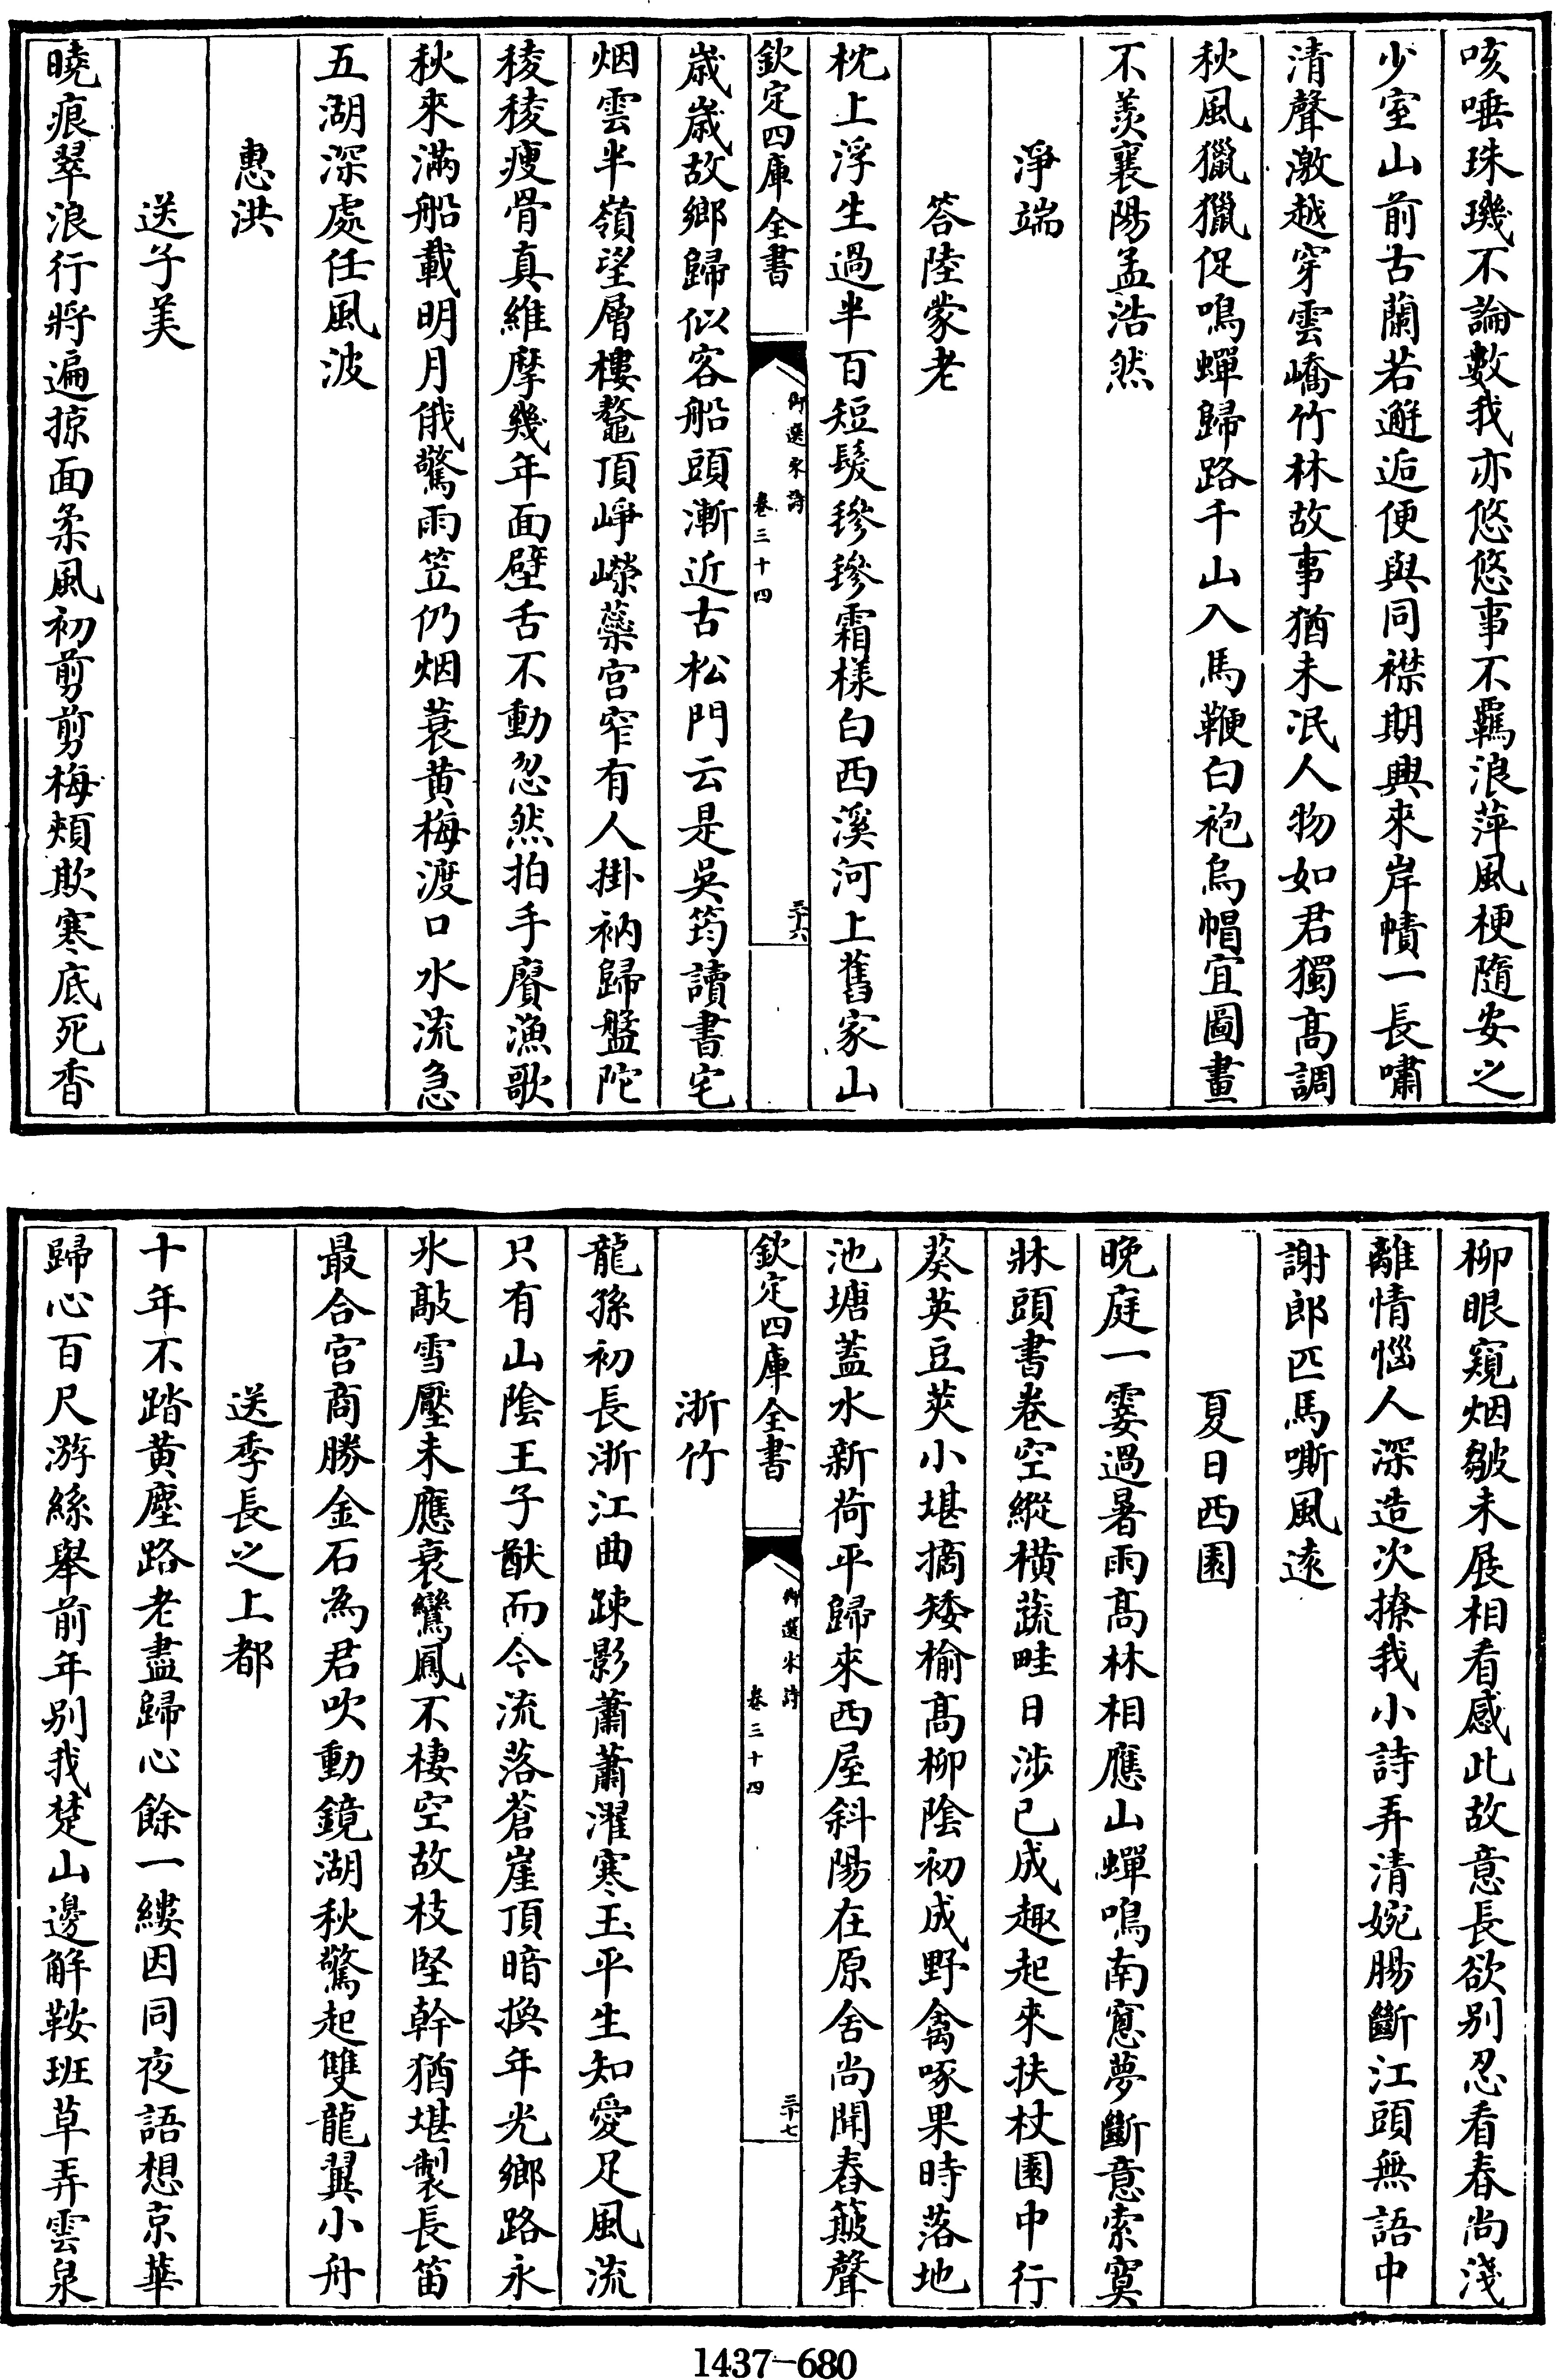 咳唾珠璣不論數我亦悠悠事不羈浪萍風梗隨安之
少室山前古蘭若邂逅便與同襟期興來岸幘一長嘯
清聲激越穿雲嶠竹林故事猶未泯人物如君獨髙調
秋風獵獵促鳴蟬歸路千山入馬鞭白袍烏帽宜圖畫
不羨襄陽孟浩然
淨端
答陸蒙老
枕上浮生過半百短髮鬖鬖霜樣白西溪河上舊家山
欽定四庫全書
御選宋詩
卷三十四
三十六
歲歲故鄉歸似客船頭漸近古松門云是吳筠讀書宅
烟雲半嶺望層樓鼇頂崢嶸蘂宫窄有人掛衲歸盤陀
稜稜瘦骨真維摩幾年面壁舌不動忽然拍手賡漁歌
秋來滿船載明月俄驚雨笠仍烟蓑黄梅渡口水流急
五湖深處任風波
惠洪
送子美
曉痕翠浪行將遍掠面柔風初剪剪梅頰欺寒底死香
柳眼窺烟皺未展相看感此故意長欲别忍看春尚淺
離情惱人深造次撩我小詩弄清婉腸斷江頭無語中
謝郎匹馬嘶風逺
夏日西園
晚庭一霎過暑雨髙林相應山蟬鳴南窻夢斷意索寞
牀頭書卷空縱横蔬畦日涉已成趣起來扶杖園中行
葵英豆莢小堪摘矮榆髙柳陰初成野禽啄果時落地
池塘蓋水新荷平歸來西屋斜陽在原舍尚聞舂簸聲
欽定四庫全書
御選宋詩
卷三十四
三十七
浙竹
龍孫初長浙江曲疎影蕭蕭濯寒玉平生知愛足風流
只有山陰王子猷而今流落蒼崖頂暗換年光鄉路永
氷敲雪壓未應衰鸞鳳不棲空故枝堅幹猶堪製長笛
最合宫商勝金石為君吹動鏡湖秋驚起雙龍翼小舟
送季長之上都
十年不踏黄塵路老盡歸心餘一縷因同夜語想京華
歸心百尺游絲舉前年别我楚山邊解鞍班草弄雲泉
1437-680